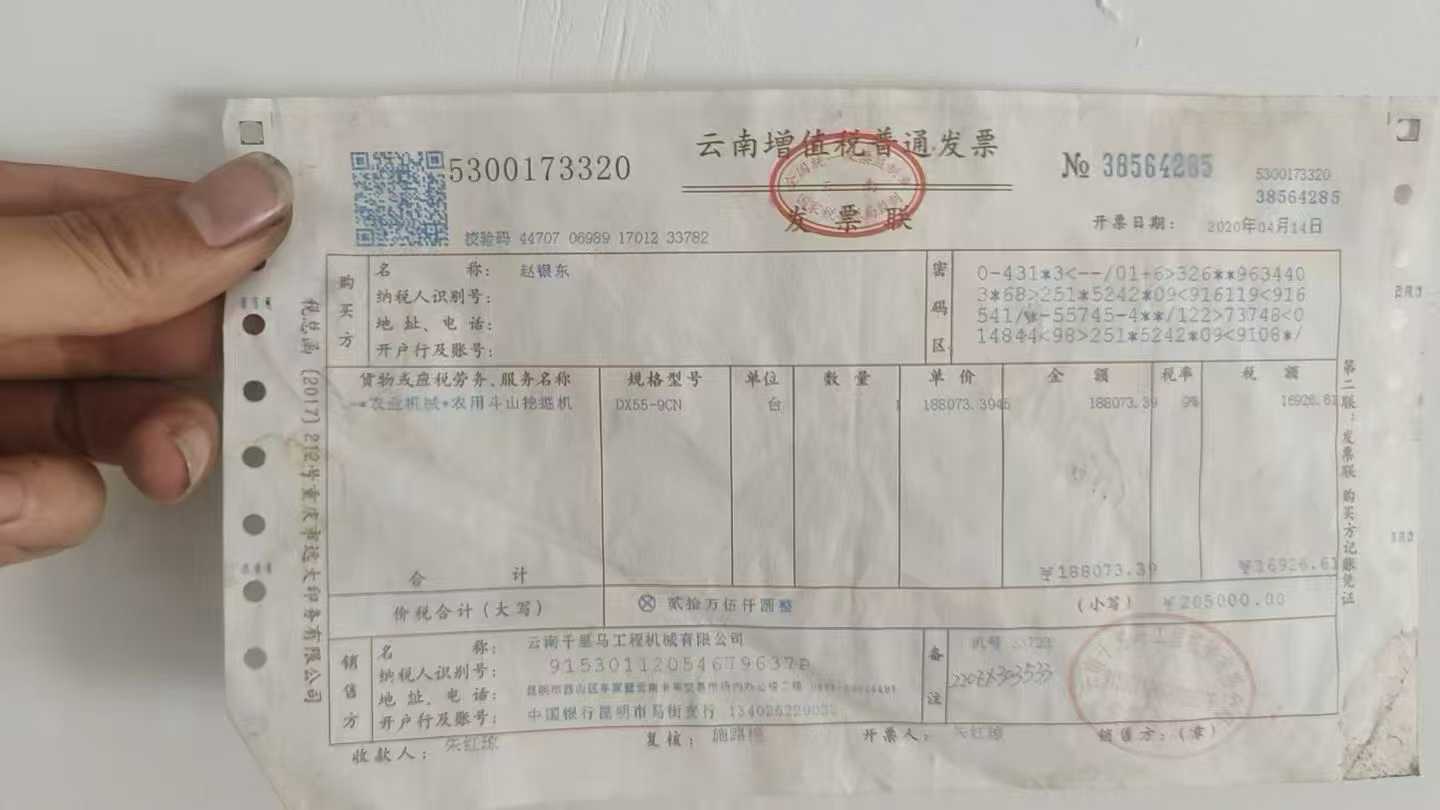 云南增值税普通发票
5300173320
№ 38564285
5300173320
38564285
发票联
校验码 44707 06989 17012 33782
开票日期: 2020年04月14日
购买方
名 称: 赵银东
纳税人识别号:
地 址、电 话:
开户行及账号:
密码区
0-431*3<--/01+6>326**963440
3*68>251*5242*09<916119<916
541/*-55745-4**/122>73748<0
14844<98>251*5242*09<9108*/
货物或应税劳务、服务名称 规格型号 单位 数 量 单 价 金 额 税率 税 额
*农业机械*农用斗山挖掘机 DX55-9CN 台 1 188073.3945 188073.39 9% 16926.61
合 计 ¥188073.39 ¥16926.61
价税合计(大写) ⊗ 贰拾万伍仟圆整 (小写) ¥205000.00
销售方
名 称: 云南千里马工程机械有限公司
纳税人识别号:
地 址、电 话:
开户行及账号: 中国银行昆明市
备注
机号
收款人: 朱红琼 复核: 开票人: 朱红琼 销售方:(章)
税总函〔2017〕212号重庆市远大印务有限公司
第二联:发票联 购买方记账凭证